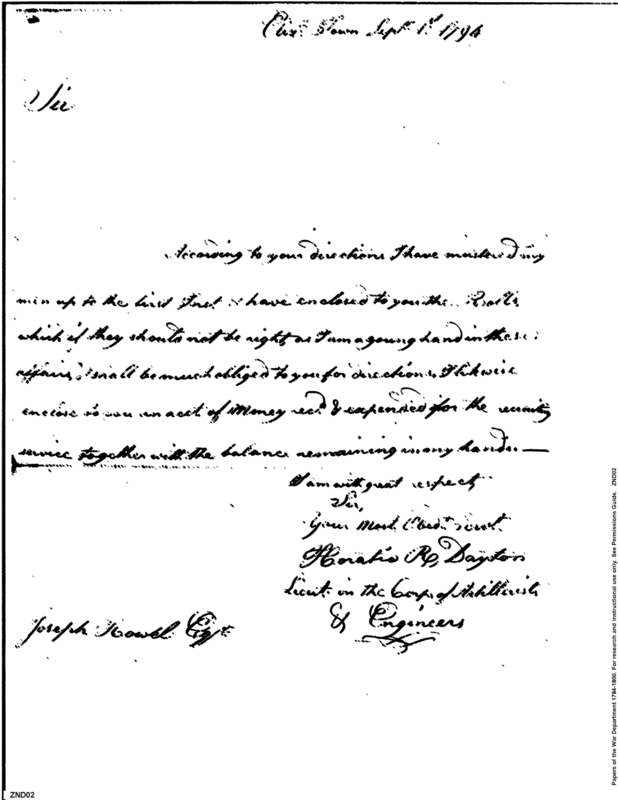 Eliz. Town Sept. 1st 1794
Sir
According to your directions I have mustered my
men up to the first I have enclosed to you the Rolls
which if they should not be right as I am a young hand in these
affairs I shall be much obliged to you for directions I likewise
enclose to you an acct. of Money recd. & expended for the recruiting
service together with the balance remaining in my hands —
I am with great respect
Sir,
Your Most Obedt. Servt.
Horatio R Dayton
Lieut. in the Corps of Artillerists
& Engineers
Joseph Howel Esqr.
Papers of the War Department 1784-1800. For research and instructional use only. See Permissions Guide. ZND02
ZND02